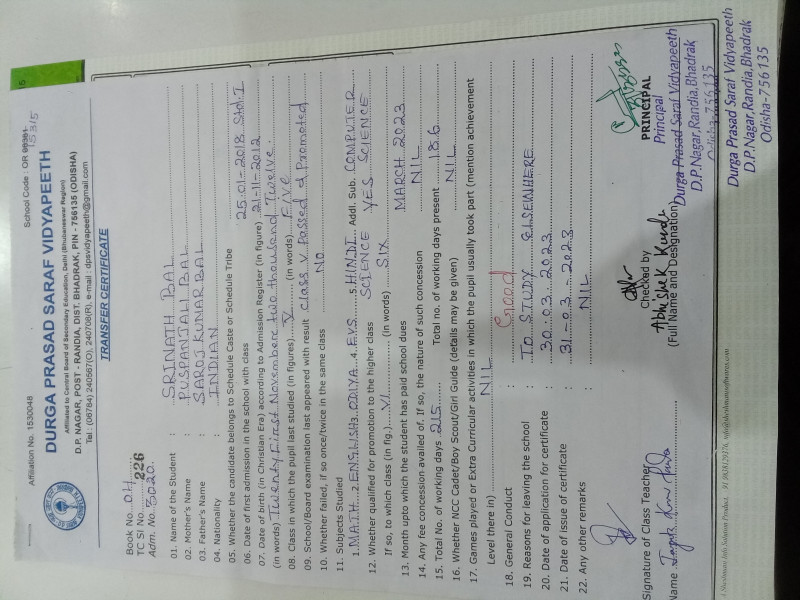 Affiliation No. 1530048
School Code : OR
15315
DURGA PRASAD SARAF VIDYAPEETH
Affiliated to Central Board of Secondary Education, Delhi (Bhubaneswar Region)
D.P. NAGAR, POST - RANDIA, DIST. BHADRAK, PIN - 756135 (ODISHA)
Tel : (06784) 240567(O), 240708(R), e-mail : dpsvidyapeeth@gmail.com
TRANSFER CERTIFICATE
Book No. 04
TC Sl No. 226
Adm. No. 3020.
01. Name of the Student : SRINATH BAL
02. Mother's Name : PUSPANJALI BAL
03. Father's Name : SAROJ KUMAR BAL
04. Nationality : INDIAN
05. Whether the candidate belongs to Schedule Caste or Schedule Tribe
06. Date of first admission in the school with class 25.01-2018 Std.I
07. Date of birth (in Christian Era) according to Admission Register (in figure) 21-11-2012
(in words) Twenty First November two thousand Twelve.
08. Class in which the pupil last studied (in figures) V (in words) Five
09. School/Board examination last appeared with result Class V Passed & Promoted
10. Whether failed, if so once/twice in the same class No
11. Subjects Studied
1. MATH 2. ENGLISH 3. ODIYA 4. EVS 5. HINDI Addl. Sub. COMPUTER
SCIENCE SCIENCE
12. Whether qualified for promotion to the higher class YES
If so, to which class (in fig.) VI (in words) SIX
13. Month upto which the student has paid school dues MARCH 2023
14. Any fee concession availed of. If so, the nature of such concession NIL
15. Total No. of working days 215 Total no. of working days present 186
16. Whether NCC Cadet/Boy Scout/Girl Guide (details may be given) NIL
17. Games played or Extra Curricular activities in which the pupil usually took part (mention achievement
Level there in) NIL
18. General Conduct : Good
19. Reasons for leaving the school : TO STUDY ELSEWHERE
20. Date of application for certificate : 30.03.2023
21. Date of issue of certificate : 31-03-2023
22. Any other remarks : NIL
Signature of Class Teacher
Name
Checked by
Abhishek Kundu
(Full Name and Designation)
PRINCIPAL
Principal
Durga Prasad Saraf Vidyapeeth
D.P.Nagar,Randia,Bhadrak
Odisha-756135
Durga Prasad Saraf Vidyapeeth
D.P.Nagar,Randia,Bhadrak
Odisha-756135